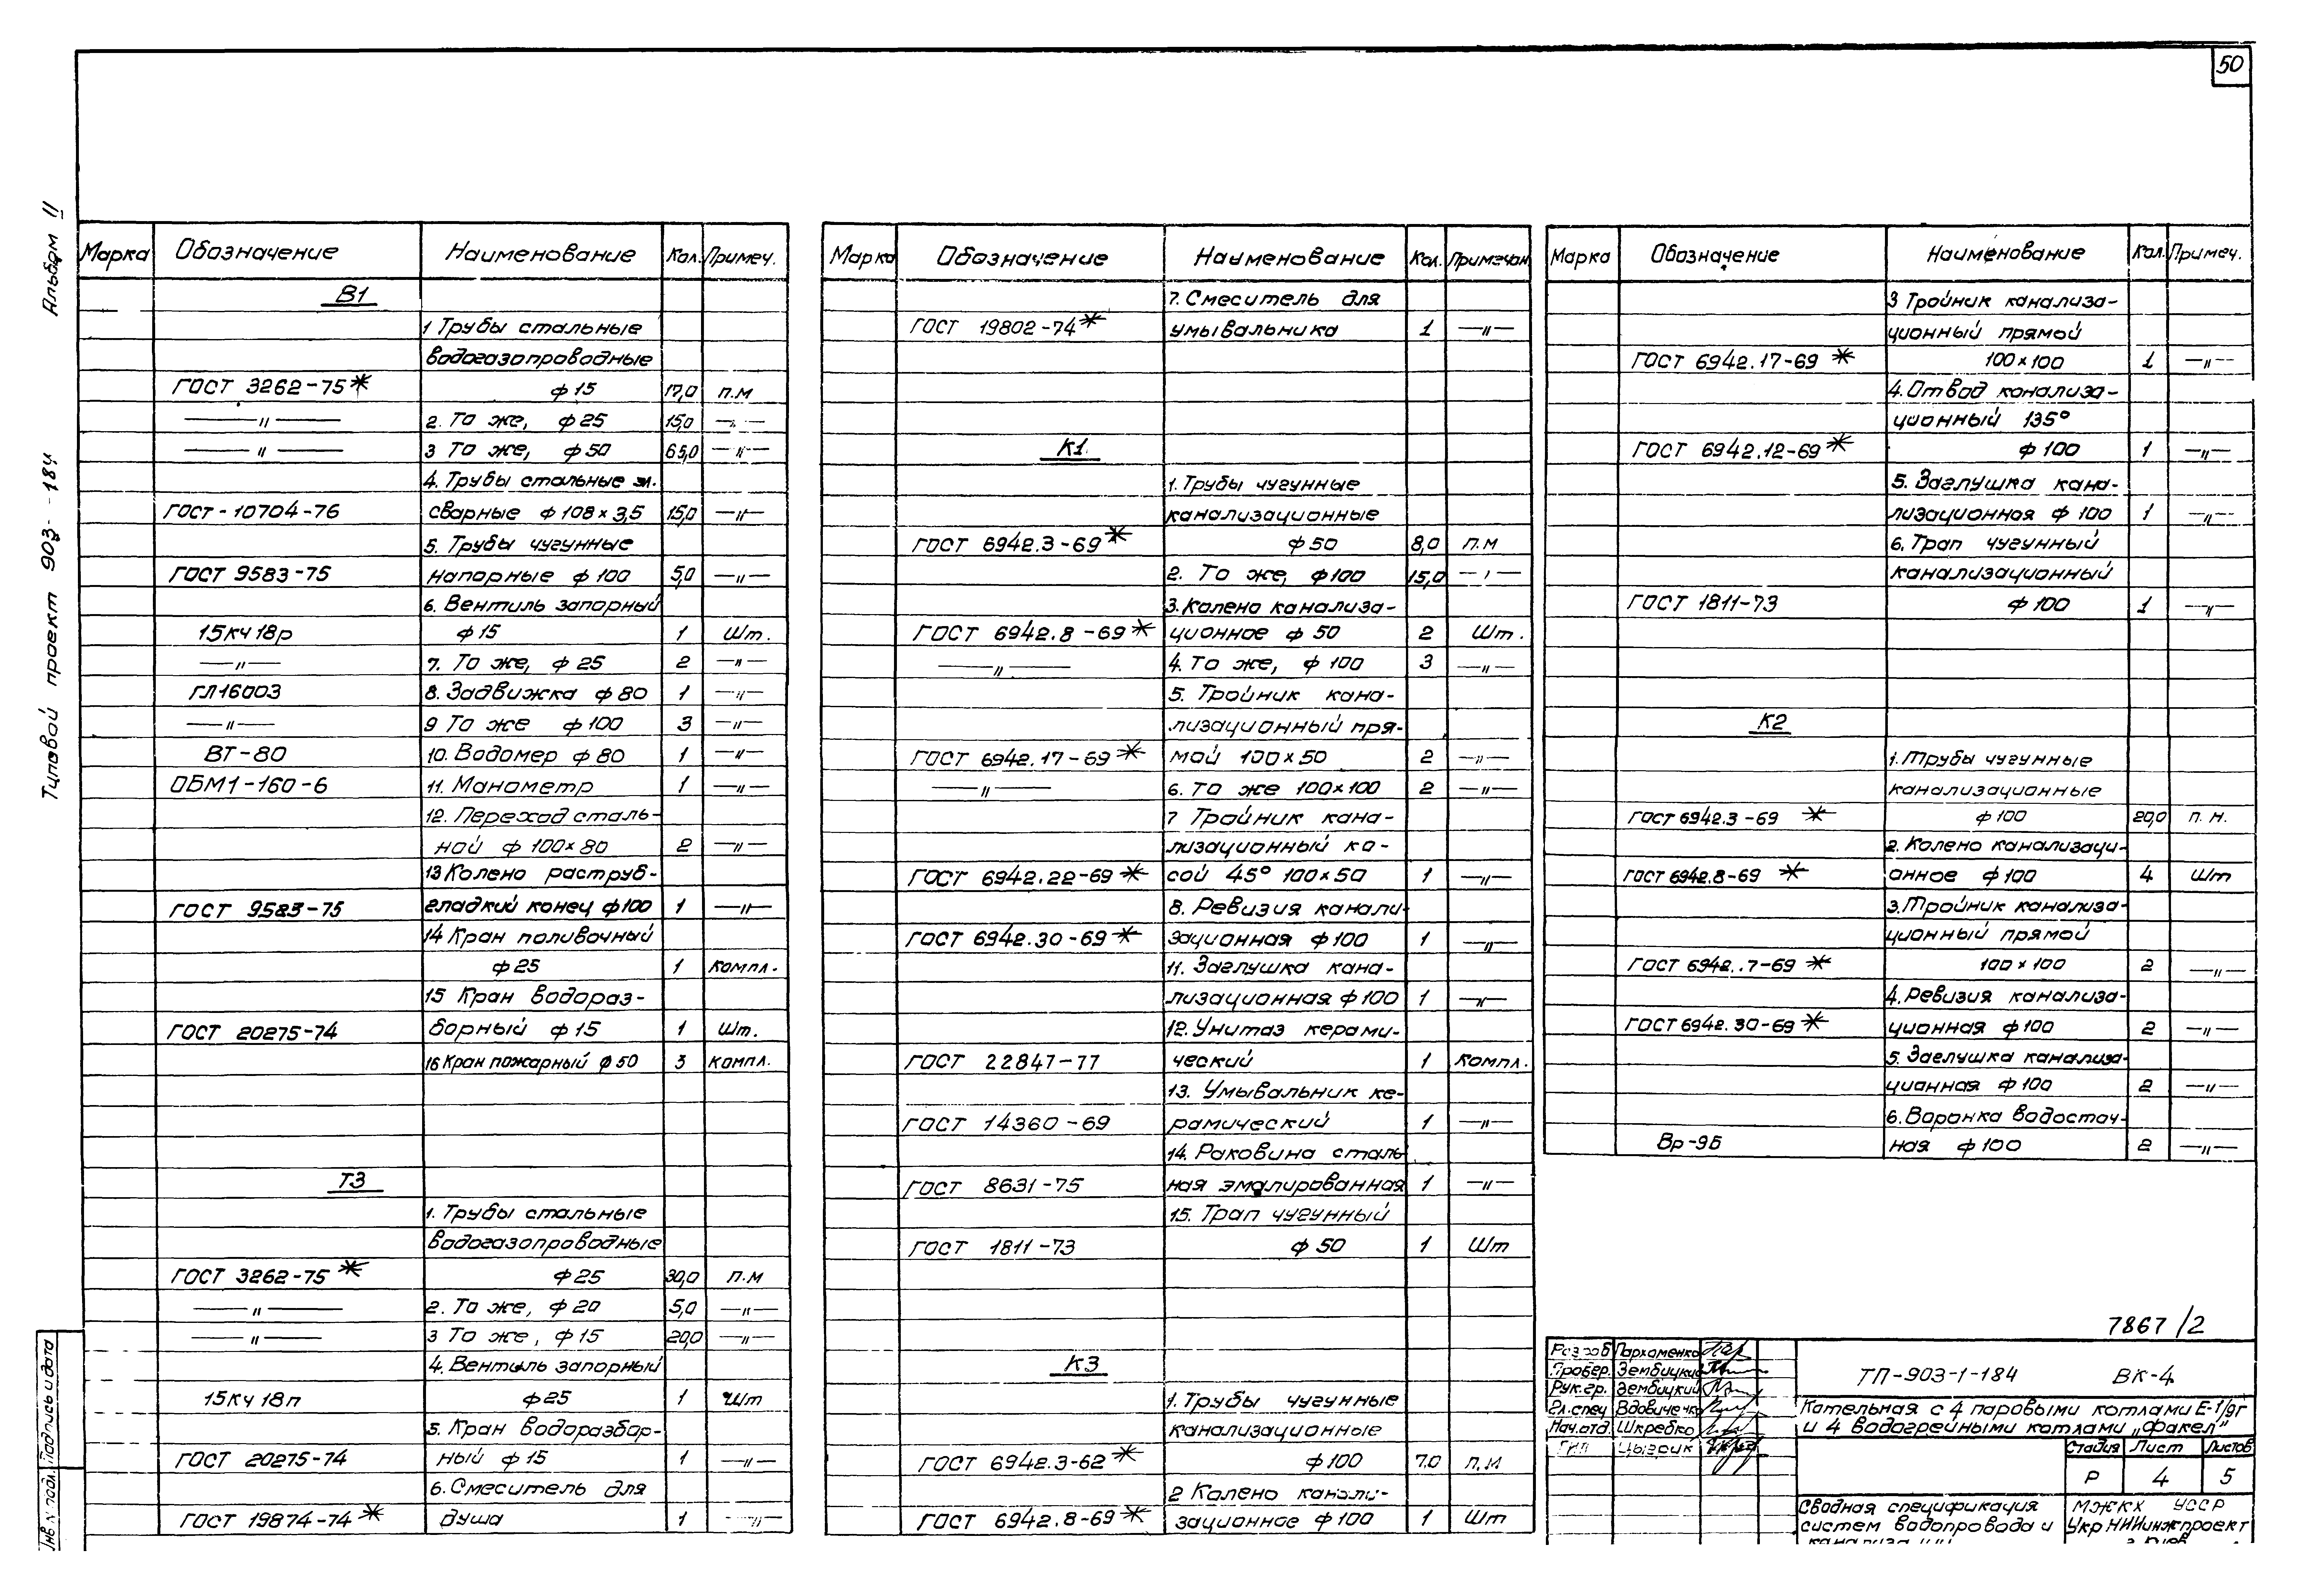 50
Альбом II
Типовой проект 903- -184
Марка Обозначение Наименование Кол. Примеч.
В1
1 Трубы стальные
водогазопроводные
ГОСТ 3262-75* ф15 17,0 п.м
—"— 2. То же, ф25 15,0 —"—
—"— 3 То же, ф50 65,0 —"—
4. Трубы стальные эл.
ГОСТ-10704-76 сварные ф108×3,5 15,0 —"—
5. Трубы чугунные
ГОСТ 9583-75 напорные ф100 5,0 —"—
6. Вентиль запорный
15кч18р ф15 1 Шт.
—"— 7. То же, ф25 2 —"—
ГЛ16003 8. Задвижка ф80 1 —"—
—"— 9 То же ф100 3 —"—
ВТ-80 10. Водомер ф80 1 —"—
ОБМ1-160-6 11. Манометр 1 —"—
12. Переход сталь-
ной ф100×80 2 —"—
13 Колено раструб-
ГОСТ 9583-75 гладкий конец ф100 1 —"—
14 Кран поливочный
ф25 1 компл.
15 Кран водораз-
ГОСТ 20275-74 борный ф15 1 Шт.
16 Кран пожарный ф50 3 компл.
Т3
1. Трубы стальные
водогазопроводные
ГОСТ 3262-75* ф25 30,0 п.м
—"— 2. То же, ф20 5,0 —"—
—"— 3 То же, ф15 20,0 —"—
4. Вентиль запорный
15кч18п ф25 1 Шт
5. Кран водоразбор-
ГОСТ 20275-74 ный ф15 1 —"—
6. Смеситель для
ГОСТ 19874-74* душа 1 —"—
Марка Обозначение Наименование Кол. Примечан
7. Смеситель для
ГОСТ 19802-74* умывальника 1 —"—
К1
1. Трубы чугунные
канализационные
ГОСТ 6942.3-69* ф50 8,0 п.м
2. То же, ф100 15,0 —"—
3. Колено канализа-
ГОСТ 6942.8-69* ционное ф50 2 Шт.
—"— 4. То же, ф100 3 —"—
5. Тройник кана-
лизационный пря-
ГОСТ 6942.17-69* мой 100×50 2 —"—
—"— 6. То же 100×100 2 —"—
7 Тройник кана-
лизационный ко-
ГОСТ 6942.22-69* сой 45° 100×50 1 —"—
8. Ревизия канали-
ГОСТ 6942.30-69* зационная ф100 1 —"—
11. Заглушка кана-
лизационная ф100 1 —"—
12. Унитаз керами-
ГОСТ 22847-77 ческий 1 компл.
13. Умывальник ке-
ГОСТ 14360-69 рамический 1 —"—
14. Раковина сталь
ГОСТ 8631-75 ная эмалированная 1 —"—
15. Трап чугунный
ГОСТ 1811-73 ф50 1 Шт
К3
1. Трубы чугунные
канализационные
ГОСТ 6942.3-62* ф100 7,0 п.м
2 Колено канали-
ГОСТ 6942.8-69* зационное ф100 1 Шт
Марка Обозначение Наименование Кол. Примеч.
3 Тройник канализа-
ционный прямой
ГОСТ 6942.17-69* 100×100 1 —"—
4. Отвод канализа-
ционный 135°
ГОСТ 6942.12-69* ф100 1 —"—
5. Заглушка кана-
лизационная ф100 1 —"—
6. Трап чугунный
канализационный
ГОСТ 1811-73 ф100 1 —"—
К2
1. Трубы чугунные
канализационные
ГОСТ 6942.3-69 * ф100 20,0 п.м.
2. Колено канализаци-
ГОСТ 6942.8-69 * онное ф100 4 Шт
3. Тройник канализа-
ционный прямой
ГОСТ 6942..7-69* 100×100 2 —"—
4. Ревизия канализа-
ГОСТ 6942.30-69* ционная ф100 2 —"—
5. Заглушка канализа-
ционная ф100 2 —"—
6. Воронка водосточ-
Вр-9Б ная ф100 2 —"—
7867/2
Разраб Пархоменко
Провер. Зембицкий
Рук.гр. Зембицкий
Гл.спец Вдовиченко
Нач.отд. Шкребко
ГИП Цырик
ТП-903-1-184 ВК-4
Котельная с 4 паровыми котлами Е-1/9г
и 4 водогрейными котлами „Факел"
Стадия Лист Листов
Р 4 5
Сводная спецификация
систем водопровода и
канализации
МЖКХ УССР
УкрНИИинжпроект
г. Киев
Инв.№ подл. Подпись и дата